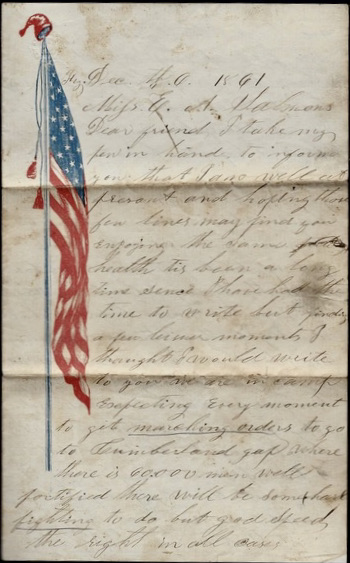 Ky. Dec. 1861
Miss E.
Dear friend I take my
pen in hand to inform
you that I am well at
present and hoping these
few lines may find you
enjoying the same
health tis been a long
time sence I have had the
time to write but finding
a few leisur moments I
thaught I would write
to you we are in camp
expecting every moment
to get marching orders to go
to Cumberland gap where
there is 60.000 men well
fortified there will be some hard
fighting to do but god speed
the right in all cases